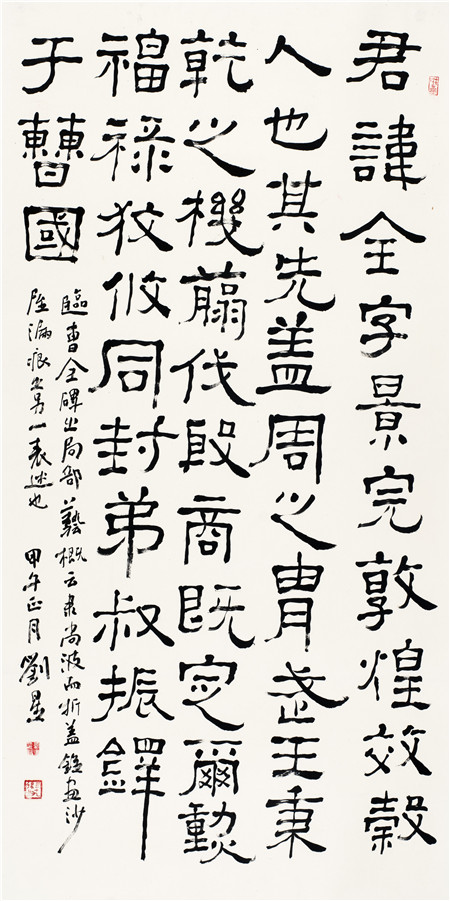 君諱全字景完敦煌效穀
人也其先蓋周之胄武王秉
乾之機翦伐殷商既定爾勳
福祿攸同封弟叔振鐸
于曹國
臨曹全碑之局部藝概云隸尚波而折蓋錐畫沙
屋漏痕之另一表述也 甲午正月劉